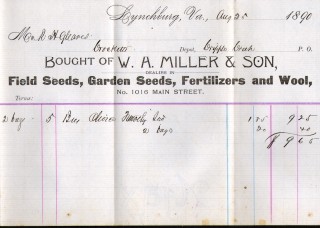 Lynchburg, Va., Aug 25 1890
Mr. R H Gleaves
Crockett Depot, Cripple Creek P. O.
BOUGHT OF W. A. MILLER & SON,
DEALERS IN
Field Seeds, Garden Seeds, Fertilizers and Wool,
No. 1016 MAIN STREET.
Terms:
2 bags 5 Bus 1 85 9 25
2 bags 20 40
$ 9 65